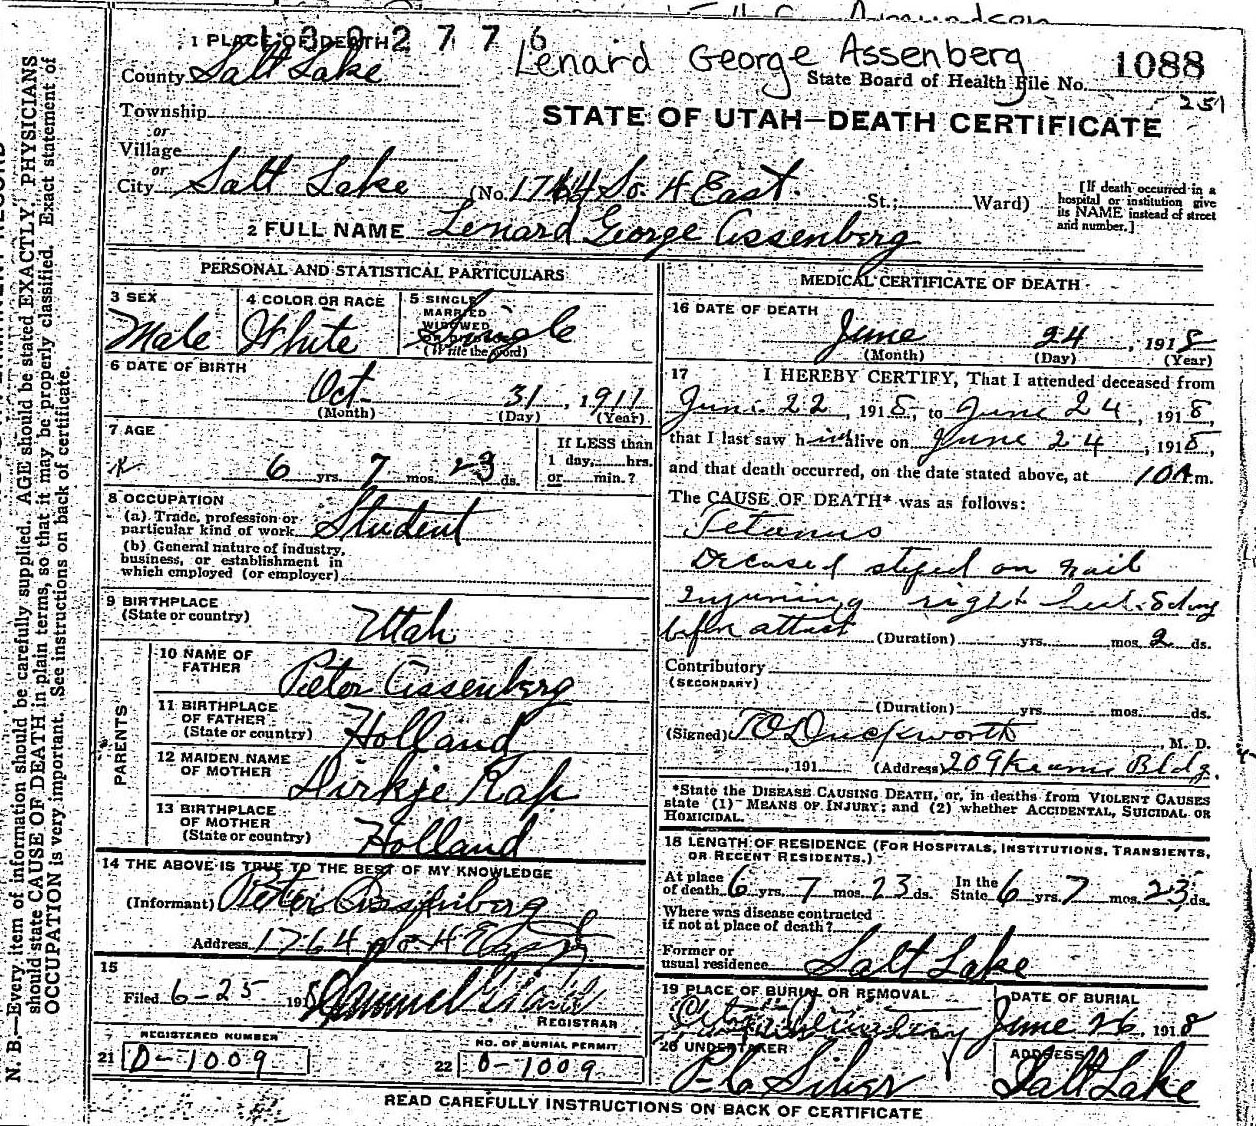 1302776
1 PLACE OF DEATH
Lenard George Assenberg
County Salt Lake
State Board of Health File No. 1088
251
Township
STATE OF UTAH—DEATH CERTIFICATE
or
Village
or
City Salt Lake (No. 1764 So. 4 East. St.; Ward)
[If death occurred in a hospital or institution give its NAME instead of street and number.]
2 FULL NAME Lenard George Assenberg
PERSONAL AND STATISTICAL PARTICULARS
3 SEX
Male
4 COLOR OR RACE
White
5 SINGLE
MARRIED
WIDOWED
OR DIVORCED
(Write the word)
Single
6 DATE OF BIRTH
Oct 31, 1911
(Month) (Day) (Year)
7 AGE
6 yrs. 7 mos. 23 ds.
If LESS than
1 day, hrs.
or min.?
8 OCCUPATION
(a) Trade, profession or
particular kind of work Student
(b) General nature of industry,
business, or establishment in
which employed (or employer)
9 BIRTHPLACE
(State or country) Utah
PARENTS
10 NAME OF
FATHER Pieter Assenberg
11 BIRTHPLACE
OF FATHER
(State or country) Holland
12 MAIDEN NAME
OF MOTHER Dirkje Kap
13 BIRTHPLACE
OF MOTHER
(State or country) Holland
14 THE ABOVE IS TRUE TO THE BEST OF MY KNOWLEDGE
(Informant) Pieter Assenberg
Address 1764 So 4 East
15
Filed 6-25 1918 Samuel
REGISTRAR
REGISTERED NUMBER
21 D-1009
NO. OF BURIAL PERMIT
22 D-1009
MEDICAL CERTIFICATE OF DEATH
16 DATE OF DEATH
June 24, 1918
(Month) (Day) (Year)
17 I HEREBY CERTIFY, That I attended deceased from
June 22, 1918, to June 24, 1918,
that I last saw him alive on June 24, 1918,
and that death occurred, on the date stated above, at 10 A m.
The CAUSE OF DEATH* was as follows:
Tetanus
Deceased steped on nail
Injuring right heel. 8 days
before attact (Duration) yrs. mos. 2 ds.
Contributory
(SECONDARY)
(Duration) yrs. mos. ds.
(Signed) T O Duckworth, M. D.
, 191 (Address) 209 Kearns Bldg.
*State the DISEASE CAUSING DEATH, or, in deaths from VIOLENT CAUSES
state (1) MEANS OF INJURY; and (2) whether ACCIDENTAL, SUICIDAL OR
HOMICIDAL.
18 LENGTH OF RESIDENCE (FOR HOSPITALS, INSTITUTIONS, TRANSIENTS,
OR RECENT RESIDENTS.)
At place
of death 6 yrs. 7 mos. 23 ds. In the
State 6 yrs. 7 mos. 23 ds.
Where was disease contracted
if not at place of death?
Former or
usual residence Salt Lake
19 PLACE OF BURIAL OR REMOVAL
City Cemetery
DATE OF BURIAL
June 26, 1918
20 UNDERTAKER
ADDRESS
Salt Lake
READ CAREFULLY INSTRUCTIONS ON BACK OF CERTIFICATE
N. B.—Every item of information should be carefully supplied. AGE should be stated EXACTLY. PHYSICIANS
should state CAUSE OF DEATH in plain terms, so that it may be properly classified. Exact statement of
OCCUPATION is very important. See instructions on back of certificate.